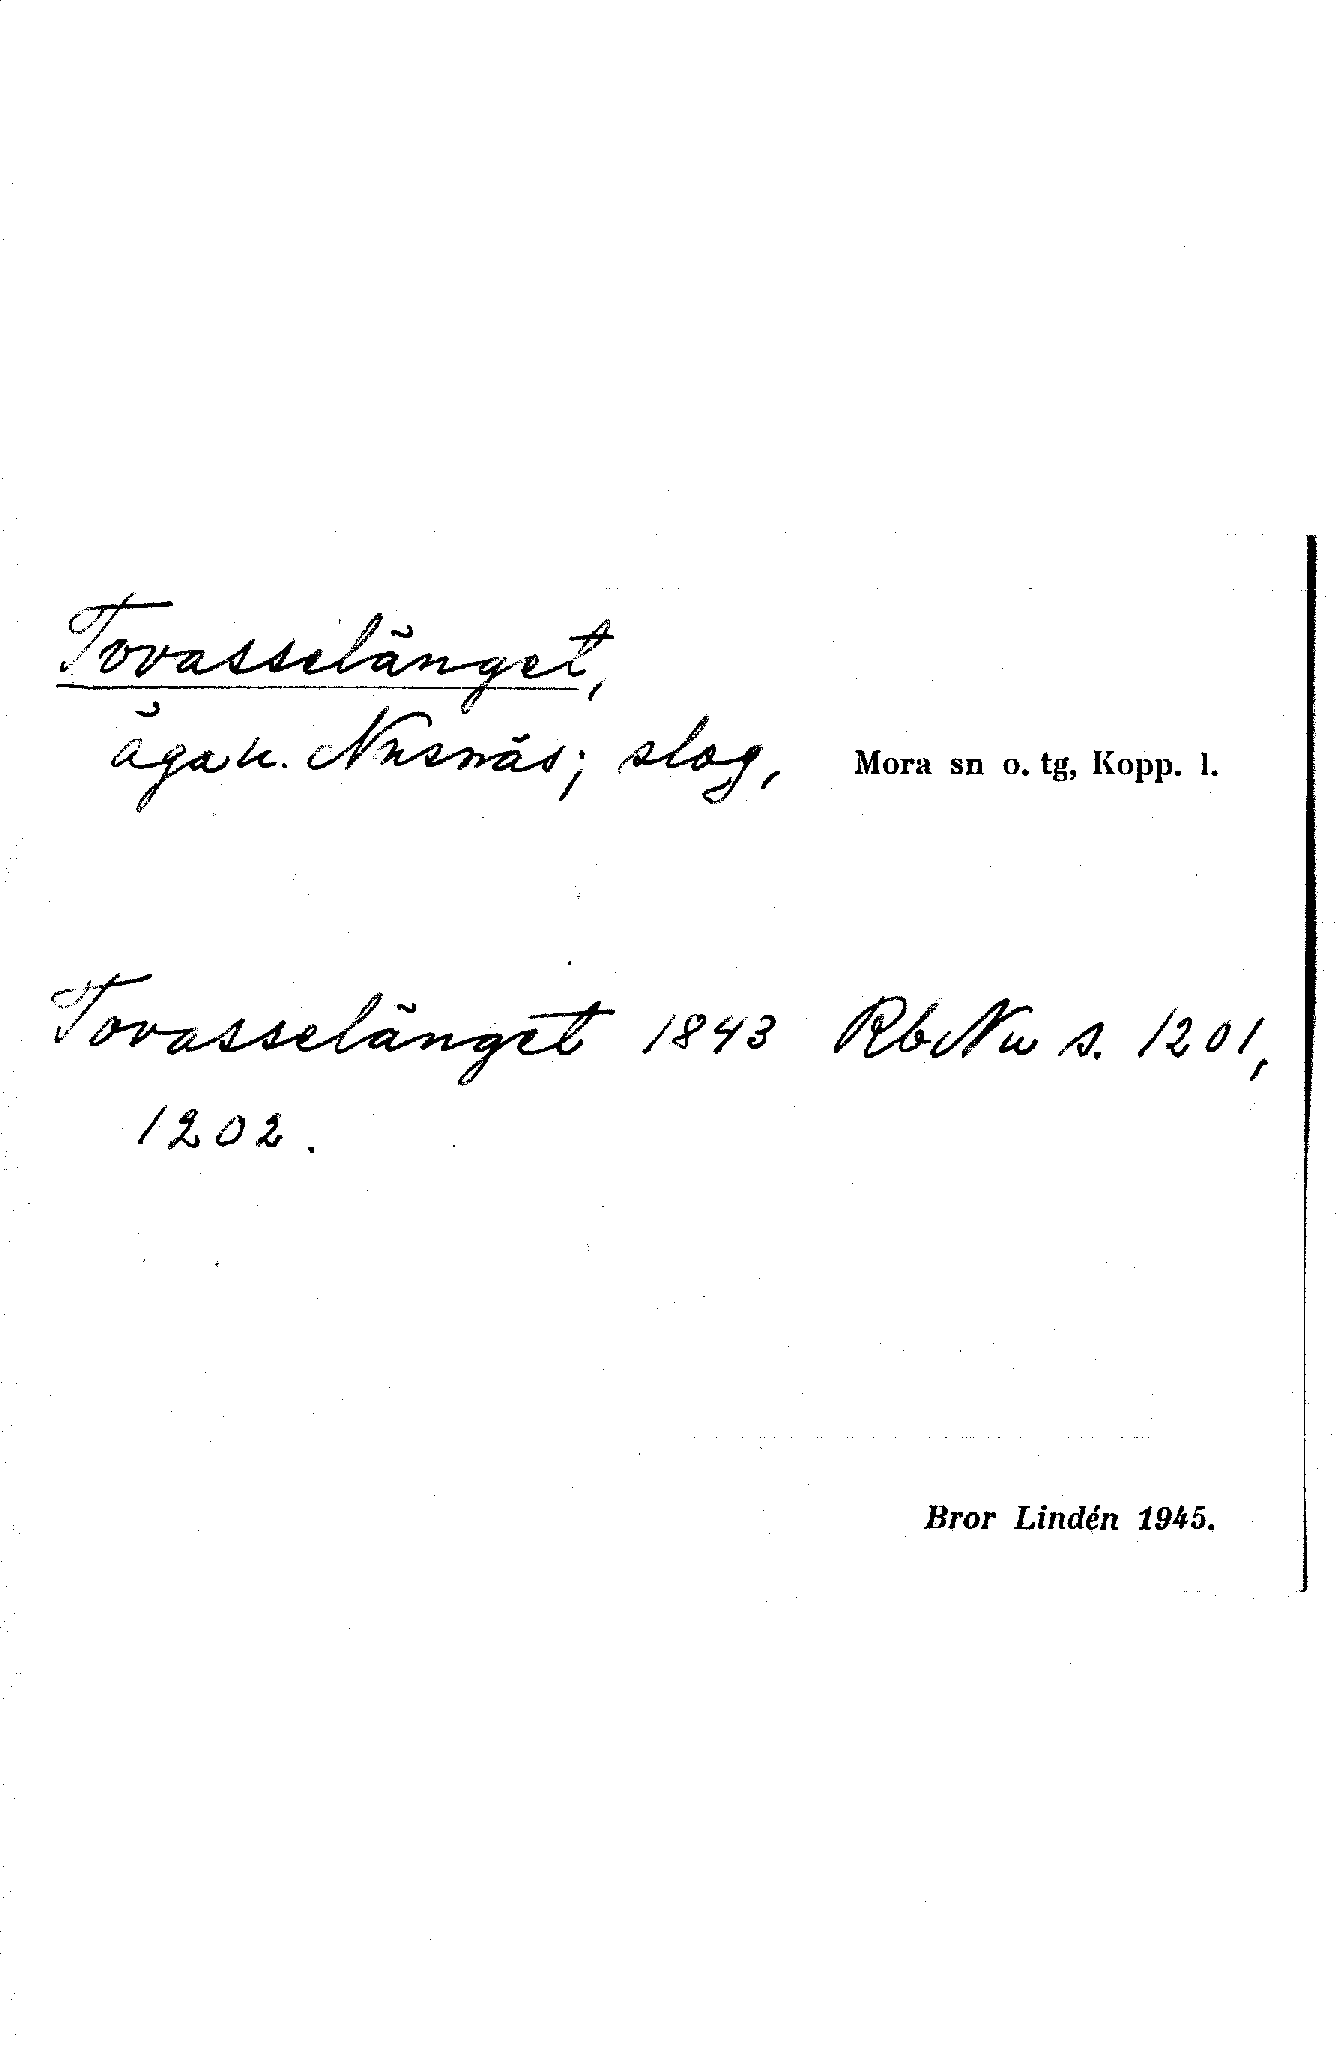 Tovasselänget,
ägah. Nusnäs; slog, Mora sn o. tg, Kopp. l.
Tovasselänget 1843 RbNu s. 1201,
1202.
Bror Lindén 1945.